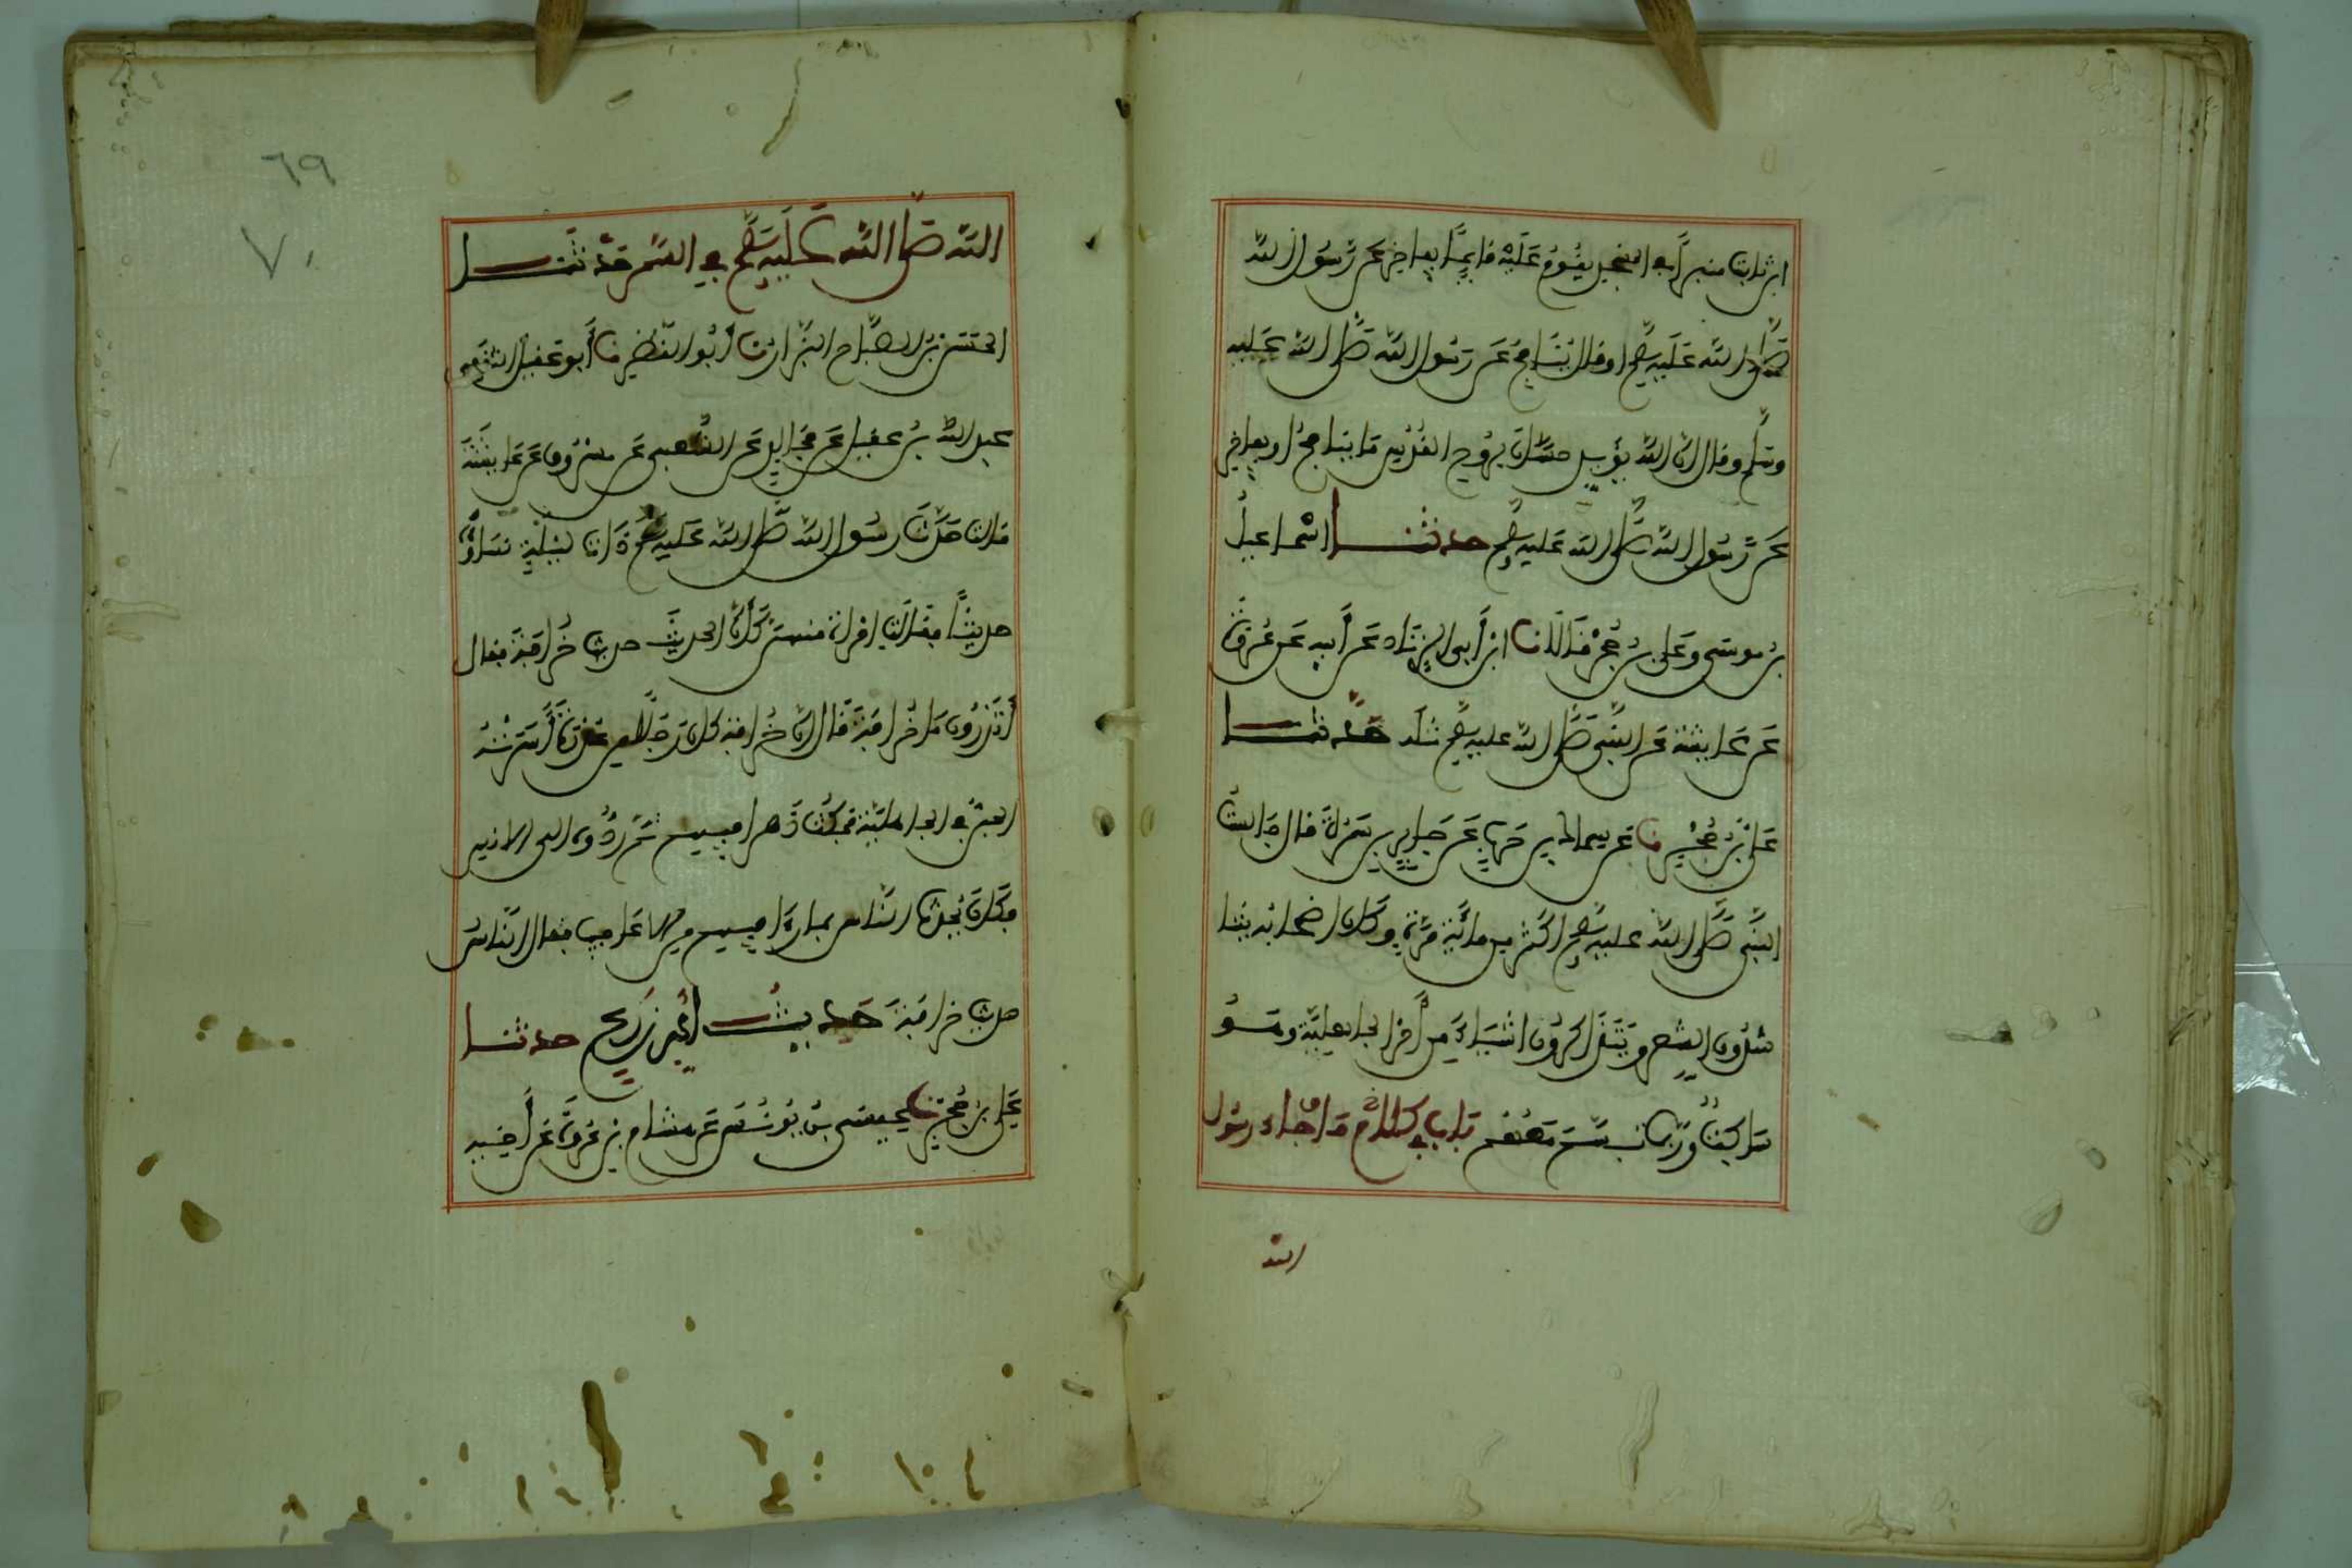 ابن ثابت منبرا في المسجد يقوم عليه قائما يفاخر عن رسول الله
صلى الله عليه وسلم او قال ينافح عن رسول الله صلى الله عليه
وسلم وقال ان الله يؤيد حسان بروح القدس ما ينافح او يفاخر
عن رسول الله صلى الله عليه وسلم حدثنا اسماعيل
بن موسى وعلي بن حجر قالا نا ابن أبي الزناد عن أبيه عن عروة
عن عايشة عن النبي صلى الله عليه وسلم مثله حدثنا
علي بن حجر نا شريك عن سماك بن حرب عن جابر بن سمرة قال جالست
النبي صلى الله عليه وسلم اكثر من مائة مرة وكان اصحابه يتنا
شدون الشعر ويتذاكرون اشياء من أمر الجاهلية وهو
ساكت وربما تبسم معهم باب في كلام ما جاء رسول
الله
٦٩
٧٠
الله صلى الله عليه وسلم في السمر حدثنا
الحسن بن الصباح البزار نا أبو النضر نا أبو عقيل الثقفي
عبد الله بن عقيل عن مجالد عن الشعبي عن مسروق عن عايشة
قالت حدث رسول الله صلى الله عليه وسلم ذات ليلة نساءه
حديثا فقالت امراة منهن كأن الحديث حديث خرافة فقال
أتدرون ما خرافة قال ان خرافة كان رجلا من عذرة أسرته
الجن في الجاهلية فمكث دهرا فيهم ثم ردوه الى الانس
فكان يحدث الناس بما راى فيهم من الاعاجيب فقال الناس
حديث خرافة حديث أم زرع حدثنا
علي بن حجر نا عيسى بن يونس عن هشام بن عروة عن أخيه